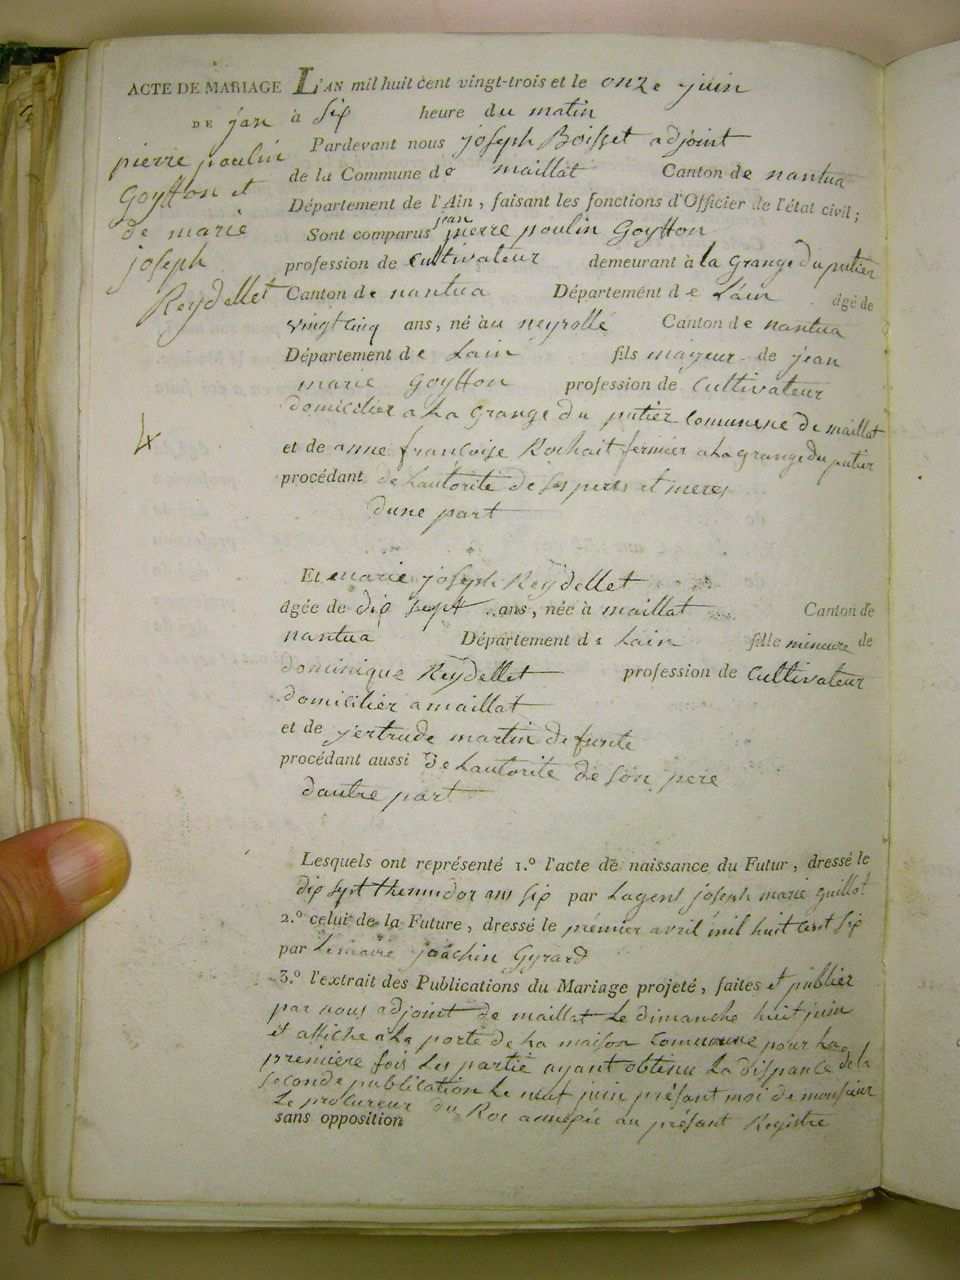 ACTE DE MARIAGE
DE jan
pierre poulin
Goyffon et
de marie
joseph
Reydellet
4
L'AN mil huit cent vingt-trois et le onze juin
à six heure du matin
Pardevant nous joseph Boisset adjoint
de la Commune de maillat Canton de nantua
Département de l'Ain, faisant les fonctions d'Officier de l'état civil;
Sont comparus jean pierre poulin Goyffon
profession de cultivateur demeurant à la Grange du putier
Canton de nantua Département de Lain âgé de
vingt cinq ans, né àu neyrolle Canton de nantua
Département de Lain fils mayeur de jean
marie Goyffon profession de cultivateur
domicilier a La Grange du putier Commune de maillat
et de anne françoise Rochait fermier a La grange du putier
procédant de Lautorité de ses peres et meres
dune part
Et marie joseph Reydellet
âgée de dix sept ans, née à maillat Canton de
nantua Département de Lain fille mineure de
dominique Reydellet profession de Cultivateur
domicilier a maillat
et de jertrude martin defunte
procédant aussi de Lautorite de son pere
dautre part
Lesquels ont représenté 1.° l'acte de naissance du Futur, dressé le
dix sept themidor ans six par Lagent joseph marie guillot
2.° celui de la Future, dressé le premier avril mil huit cent six
par Lemaire joachin Gyrard
3.° l'extrait des Publications du Mariage projeté, faites et publier
par nous adjoint de maillat Le dimanche huit juin
et affiche a La porte de La maison Commune pour La
premiere fois Les partie ayant obtenu La dispance de la
seconde publication Le neuf juin présant moi de monsieur
Le procureur du Roi annexée au présant Registre
sans opposition